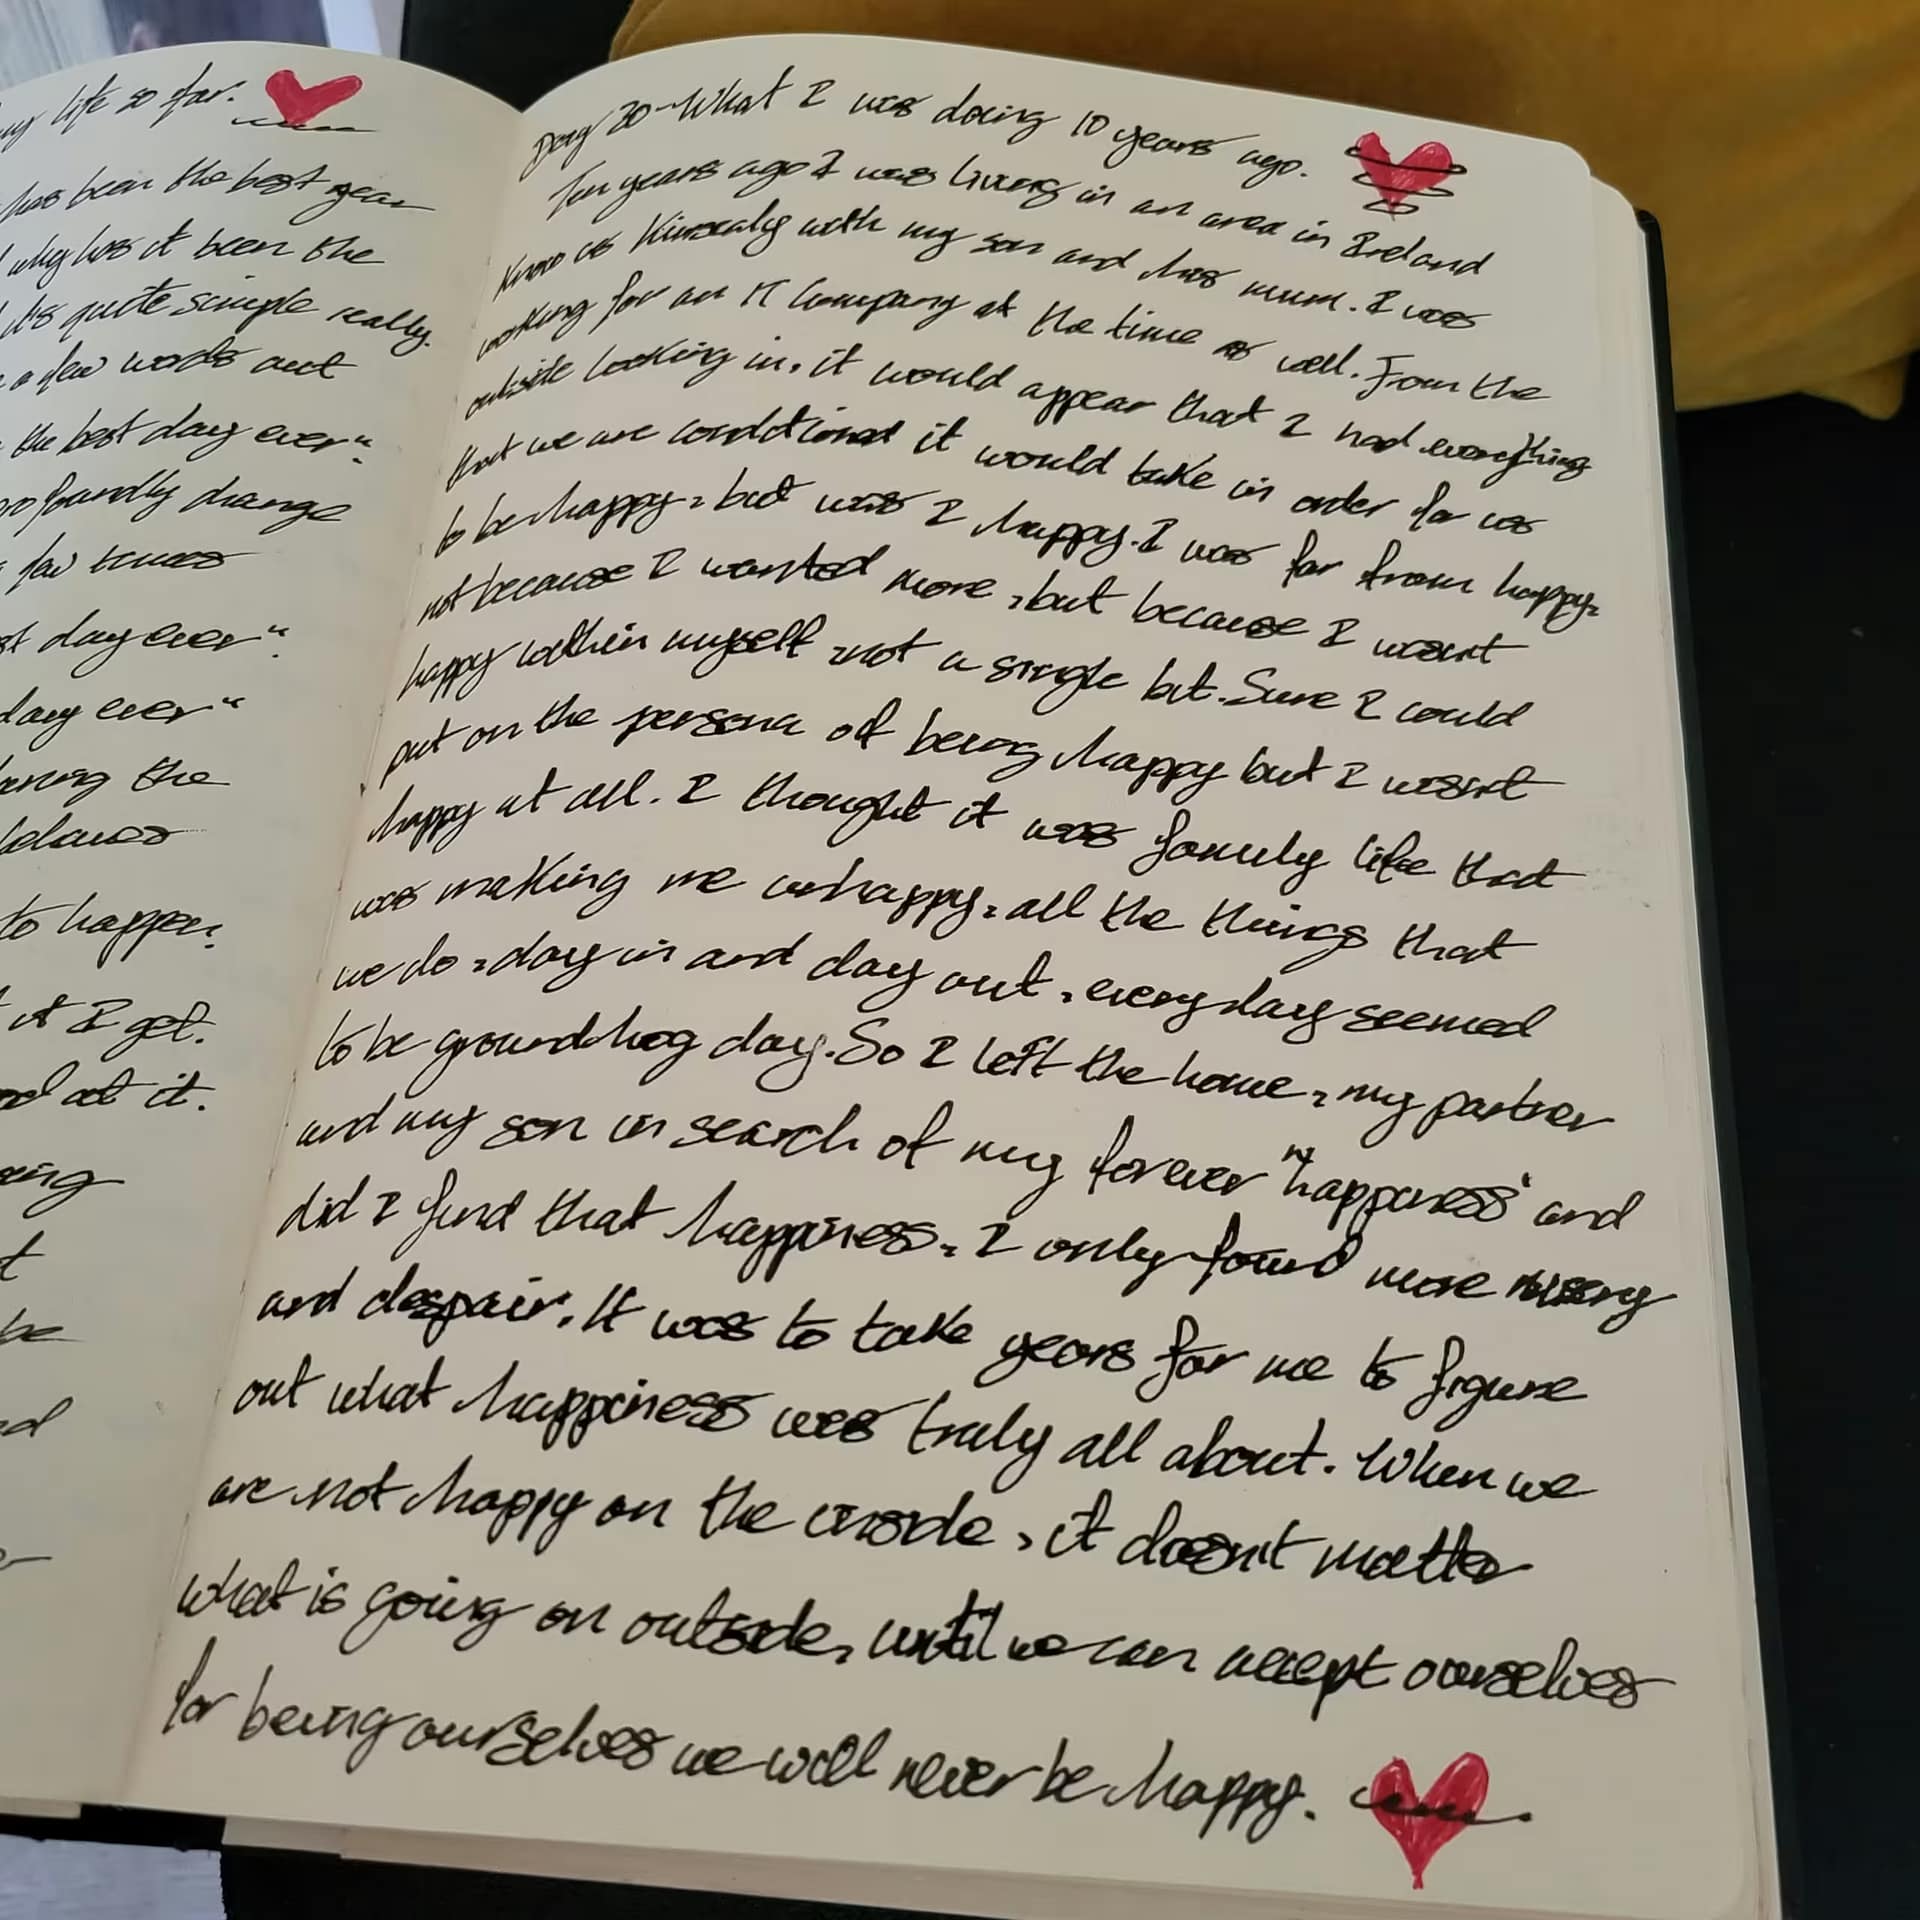 my life so far.
has been the best year
why has it been the
its quite simple really.
a few words and
the best day ever".
profoundly change
few times
day ever".
day ever"
the
to happen.
it I get.
at it.
be
Day 20-What I was doing 10 years ago.
Ten years ago I was living in an area in Ireland
know as with my son and his mum. I was
working for an IT Company at the time as well. From the
outside looking in, it would appear that I had everything
that we are conditioned it would take in order for us
to be happy, but was I happy. I was far from happy,
not because I wanted more, but because I wasnt
happy within myself, not a single bit. Sure I could
put on the persona of being happy but I wasnt
happy at all. I thought it was family life that
was making me unhappy, all the things that
we do, day in and day out, everyday seemed
to be groundhog day. So I left the home, my partner
and my son in search of my forever "happiness" and
did I find that happiness, I only found more misery
and despair. It was to take years for me to figure
out what happiness was truly all about. When we
are not happy on the inside, it doesn't matter
what is going on outside, until we can accept ourselves
for being ourselves we will never be happy.